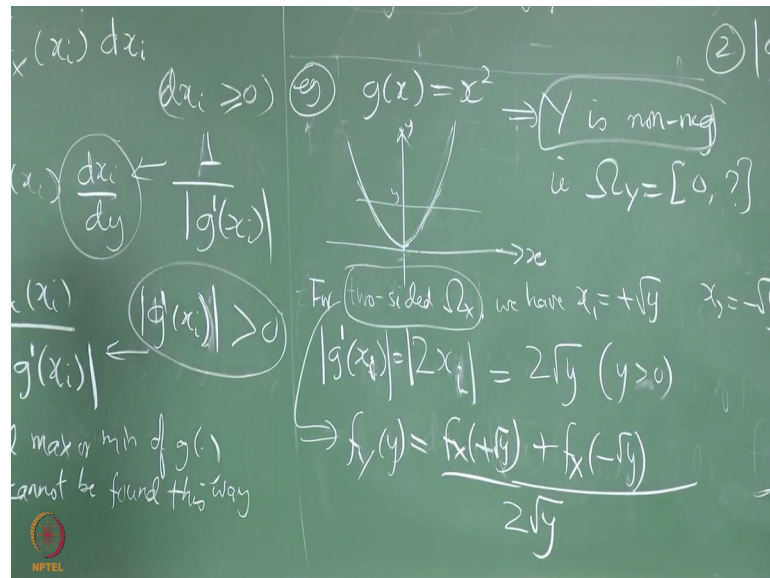 x(xᵢ) dxᵢ
(dxᵢ ≥ 0)
(xᵢ) dxᵢ/dy ← 1/|g'(xᵢ)|
(xᵢ)
g'(xᵢ)| ← |g'(xᵢ)| > 0
max or min of g(.)
cannot be found this way
eg g(x) = x²
⇒ Y is non-neg
ie Ω_Y = [0, ?]
y
y
x
For two-sided Ω_X, we have x₁ = +√y x₂ = -√y
|g'(xᵢ)| = |2xᵢ| = 2√y (y>0)
⇒ f_Y(y) = (f_X(+√y) + f_X(-√y))/2√y
② |
NPTEL